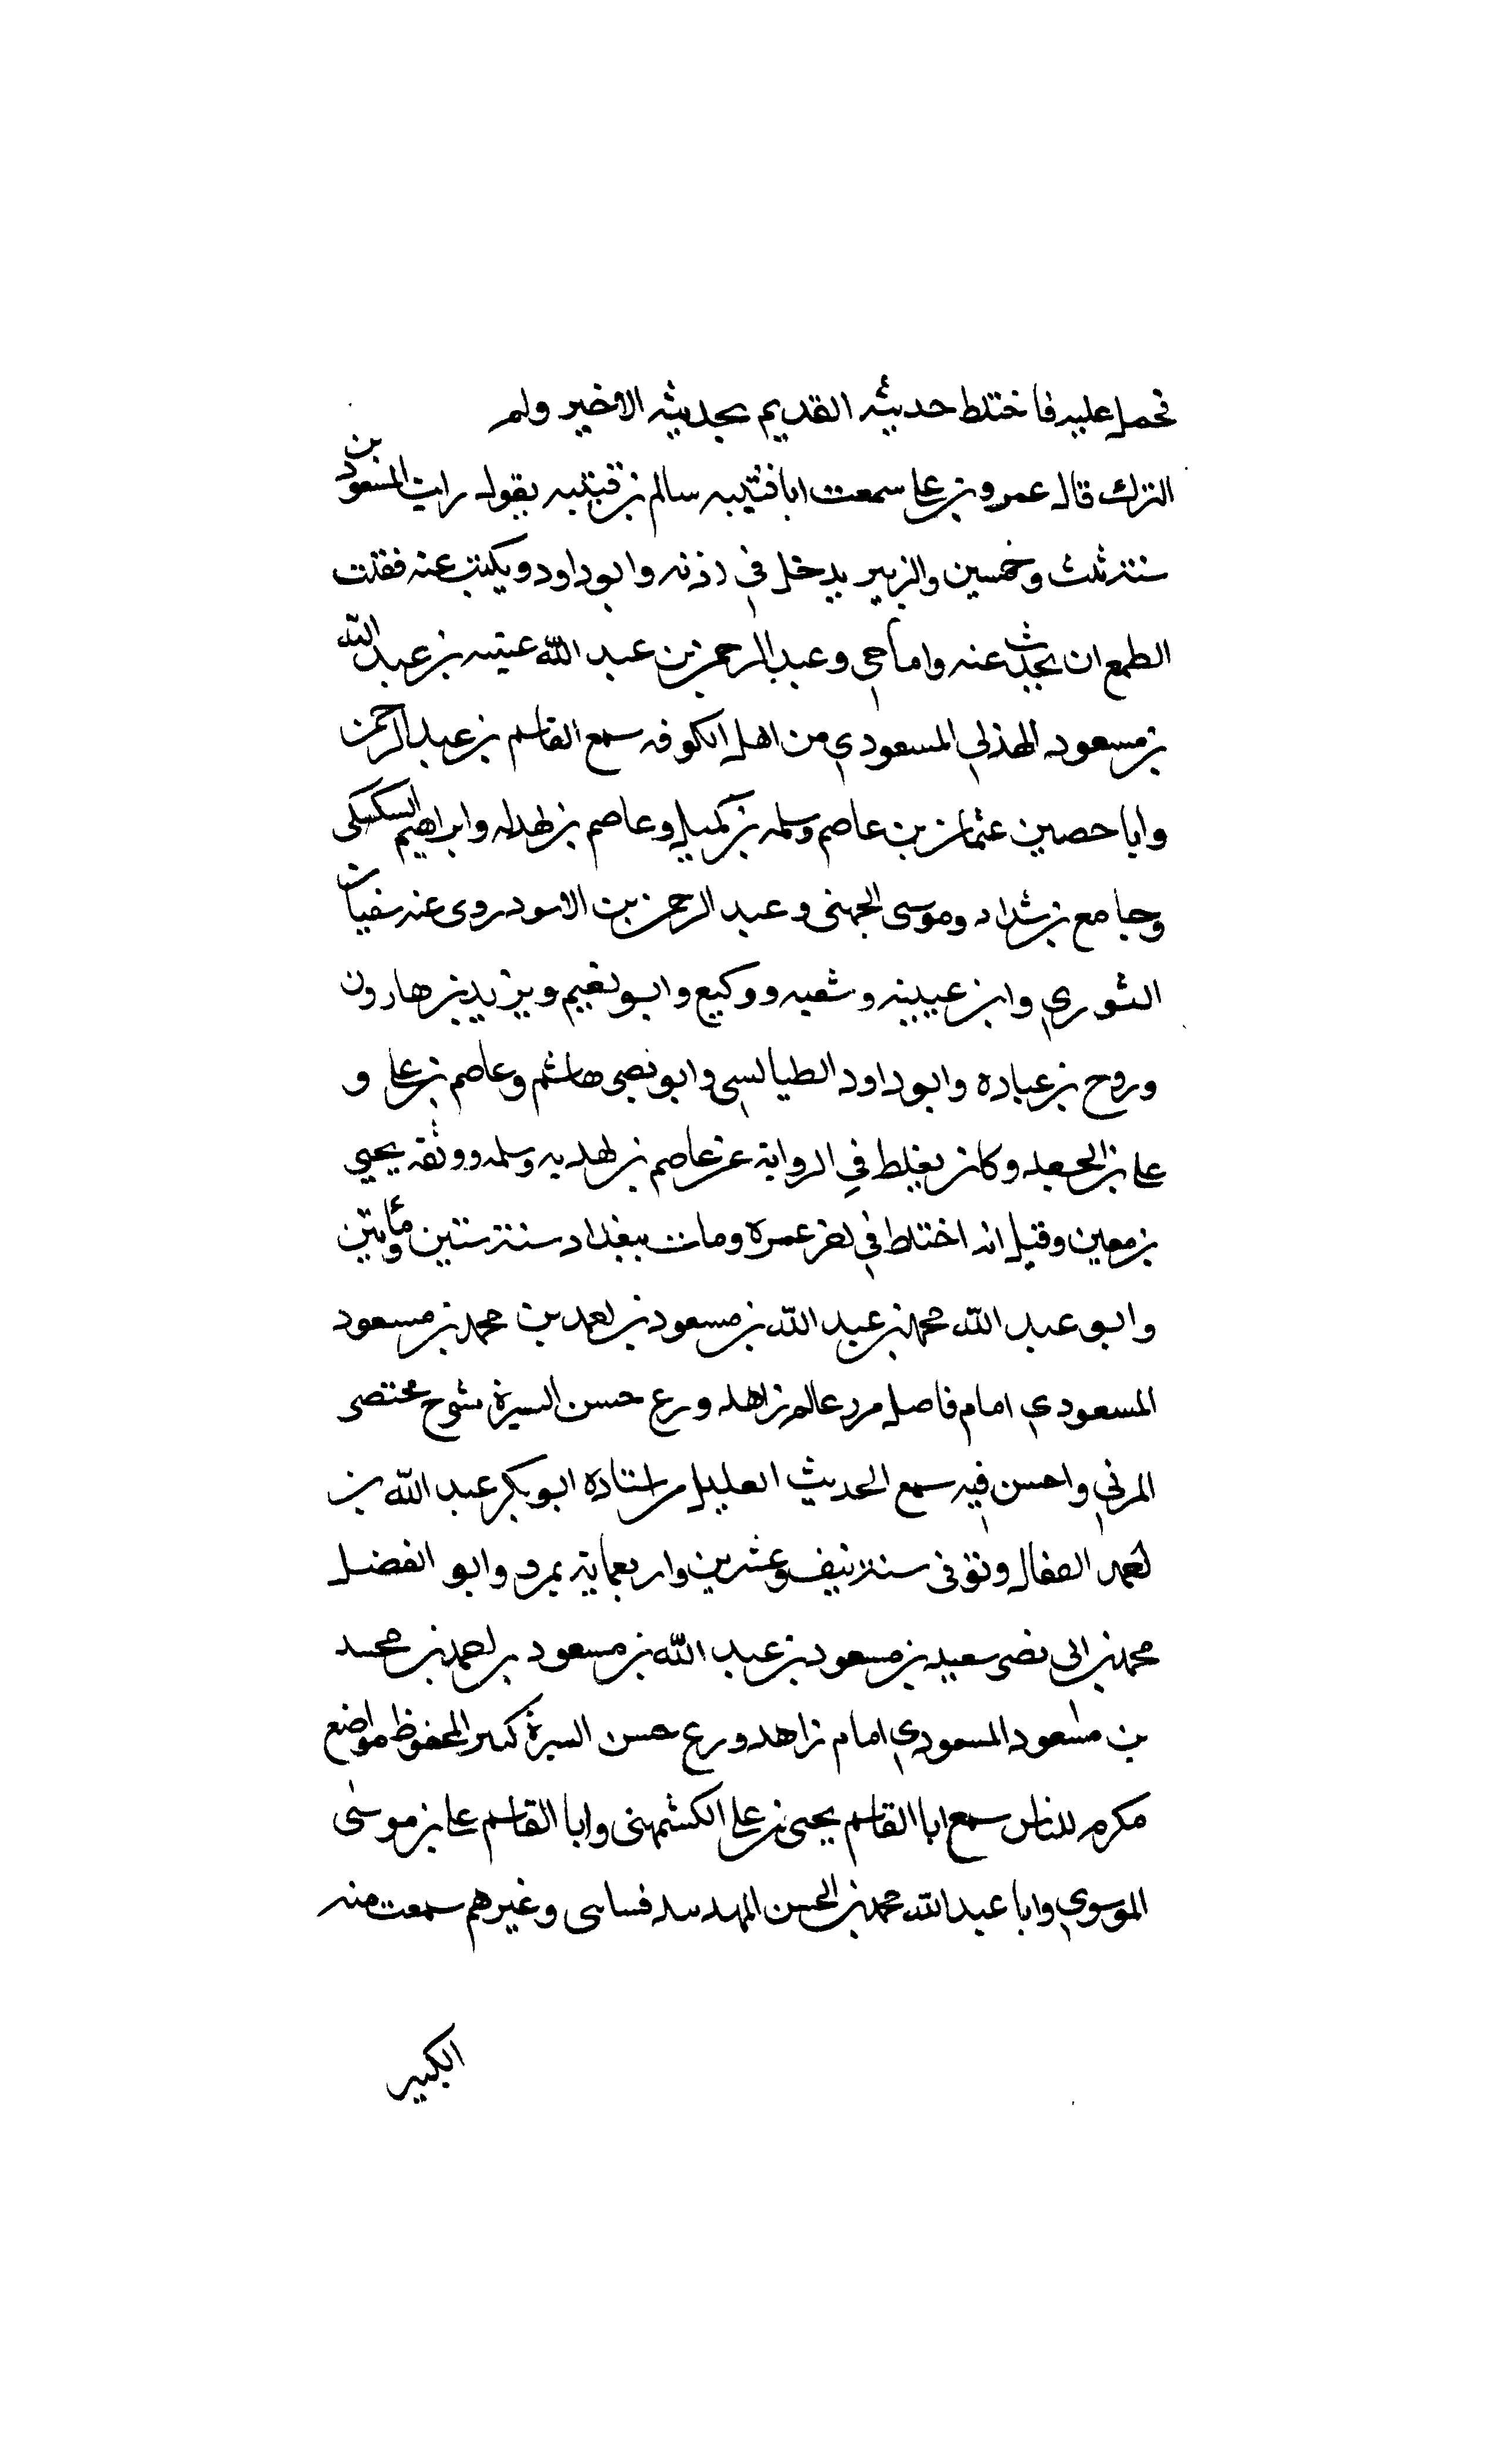 فحمل عليه فاختلط حديثه القديم بحديثه الاخير ولم
الترك قال عمرو بن علي سمعت ابا قتيبه سالم بن قتيبه يقول رايت المسعود بن
سنة ثلث وخمسين والزبير يدخل في اذنه وابو داود ويكتب عنه فقلت
الطمع ان يحدث عنه واما حي وعبد الرحمن بن عبد الله عتبه بن عبد الله
بن مسعود الهذلي المسعودي من اهل الكوفه سمع القاسم بن عبد الرحمن
وابا حصين عثمان بن عاصم وسلمه بن كميل وعاصم بن بهدله وابراهيم السكسكي
وجامع بن شداد وموسى الجهني وعبد الرحمن بن الاسود روى عنه سفيان
الثوري وابن عيينه وشعبه ووكيع وابو نعيم ويزيد بن هارون
وروح بن عباده وابو داود الطيالسي وابو نصر هاشم وعاصم بن علي و
علي بن الجعد وكان يغلط في الرواية عن عاصم بن بهدله وسلمه ووثقه يحيى
بن معين وقيل انه اختلط في اخر عمره ومات ببغداد سنة ستين ومأيتين
وابو عبد الله محمد بن عبد الله بن مسعود بن احمد بن محمد بن مسعود
المسعودي امام فاضل مرد عالم زاهد ورع حسن السيرة شرح مختصر
المزني واحسن فيه سمع الحديث العليل من استاده ابو بكر عبد الله بن
احمد القفال وتوفى سنة نيف وعشرين واربعماية بمرو وابو الفضل
محمد بن ابى نصر سعيد بن مسعود بن عبد الله بن مسعود بن احمد بن محمد
بن مسعود المسعودي امام زاهد ورع حسن السيرة كثير المحفوظ مواضع
مكرم للناس سمع ابا القاسم يحيى بن علي الكشمهنى وابا القاسم علي بن موسى
الموسوي وابا عبد الله محمد بن الحسن وغيرهم سمعت منه
الكبير